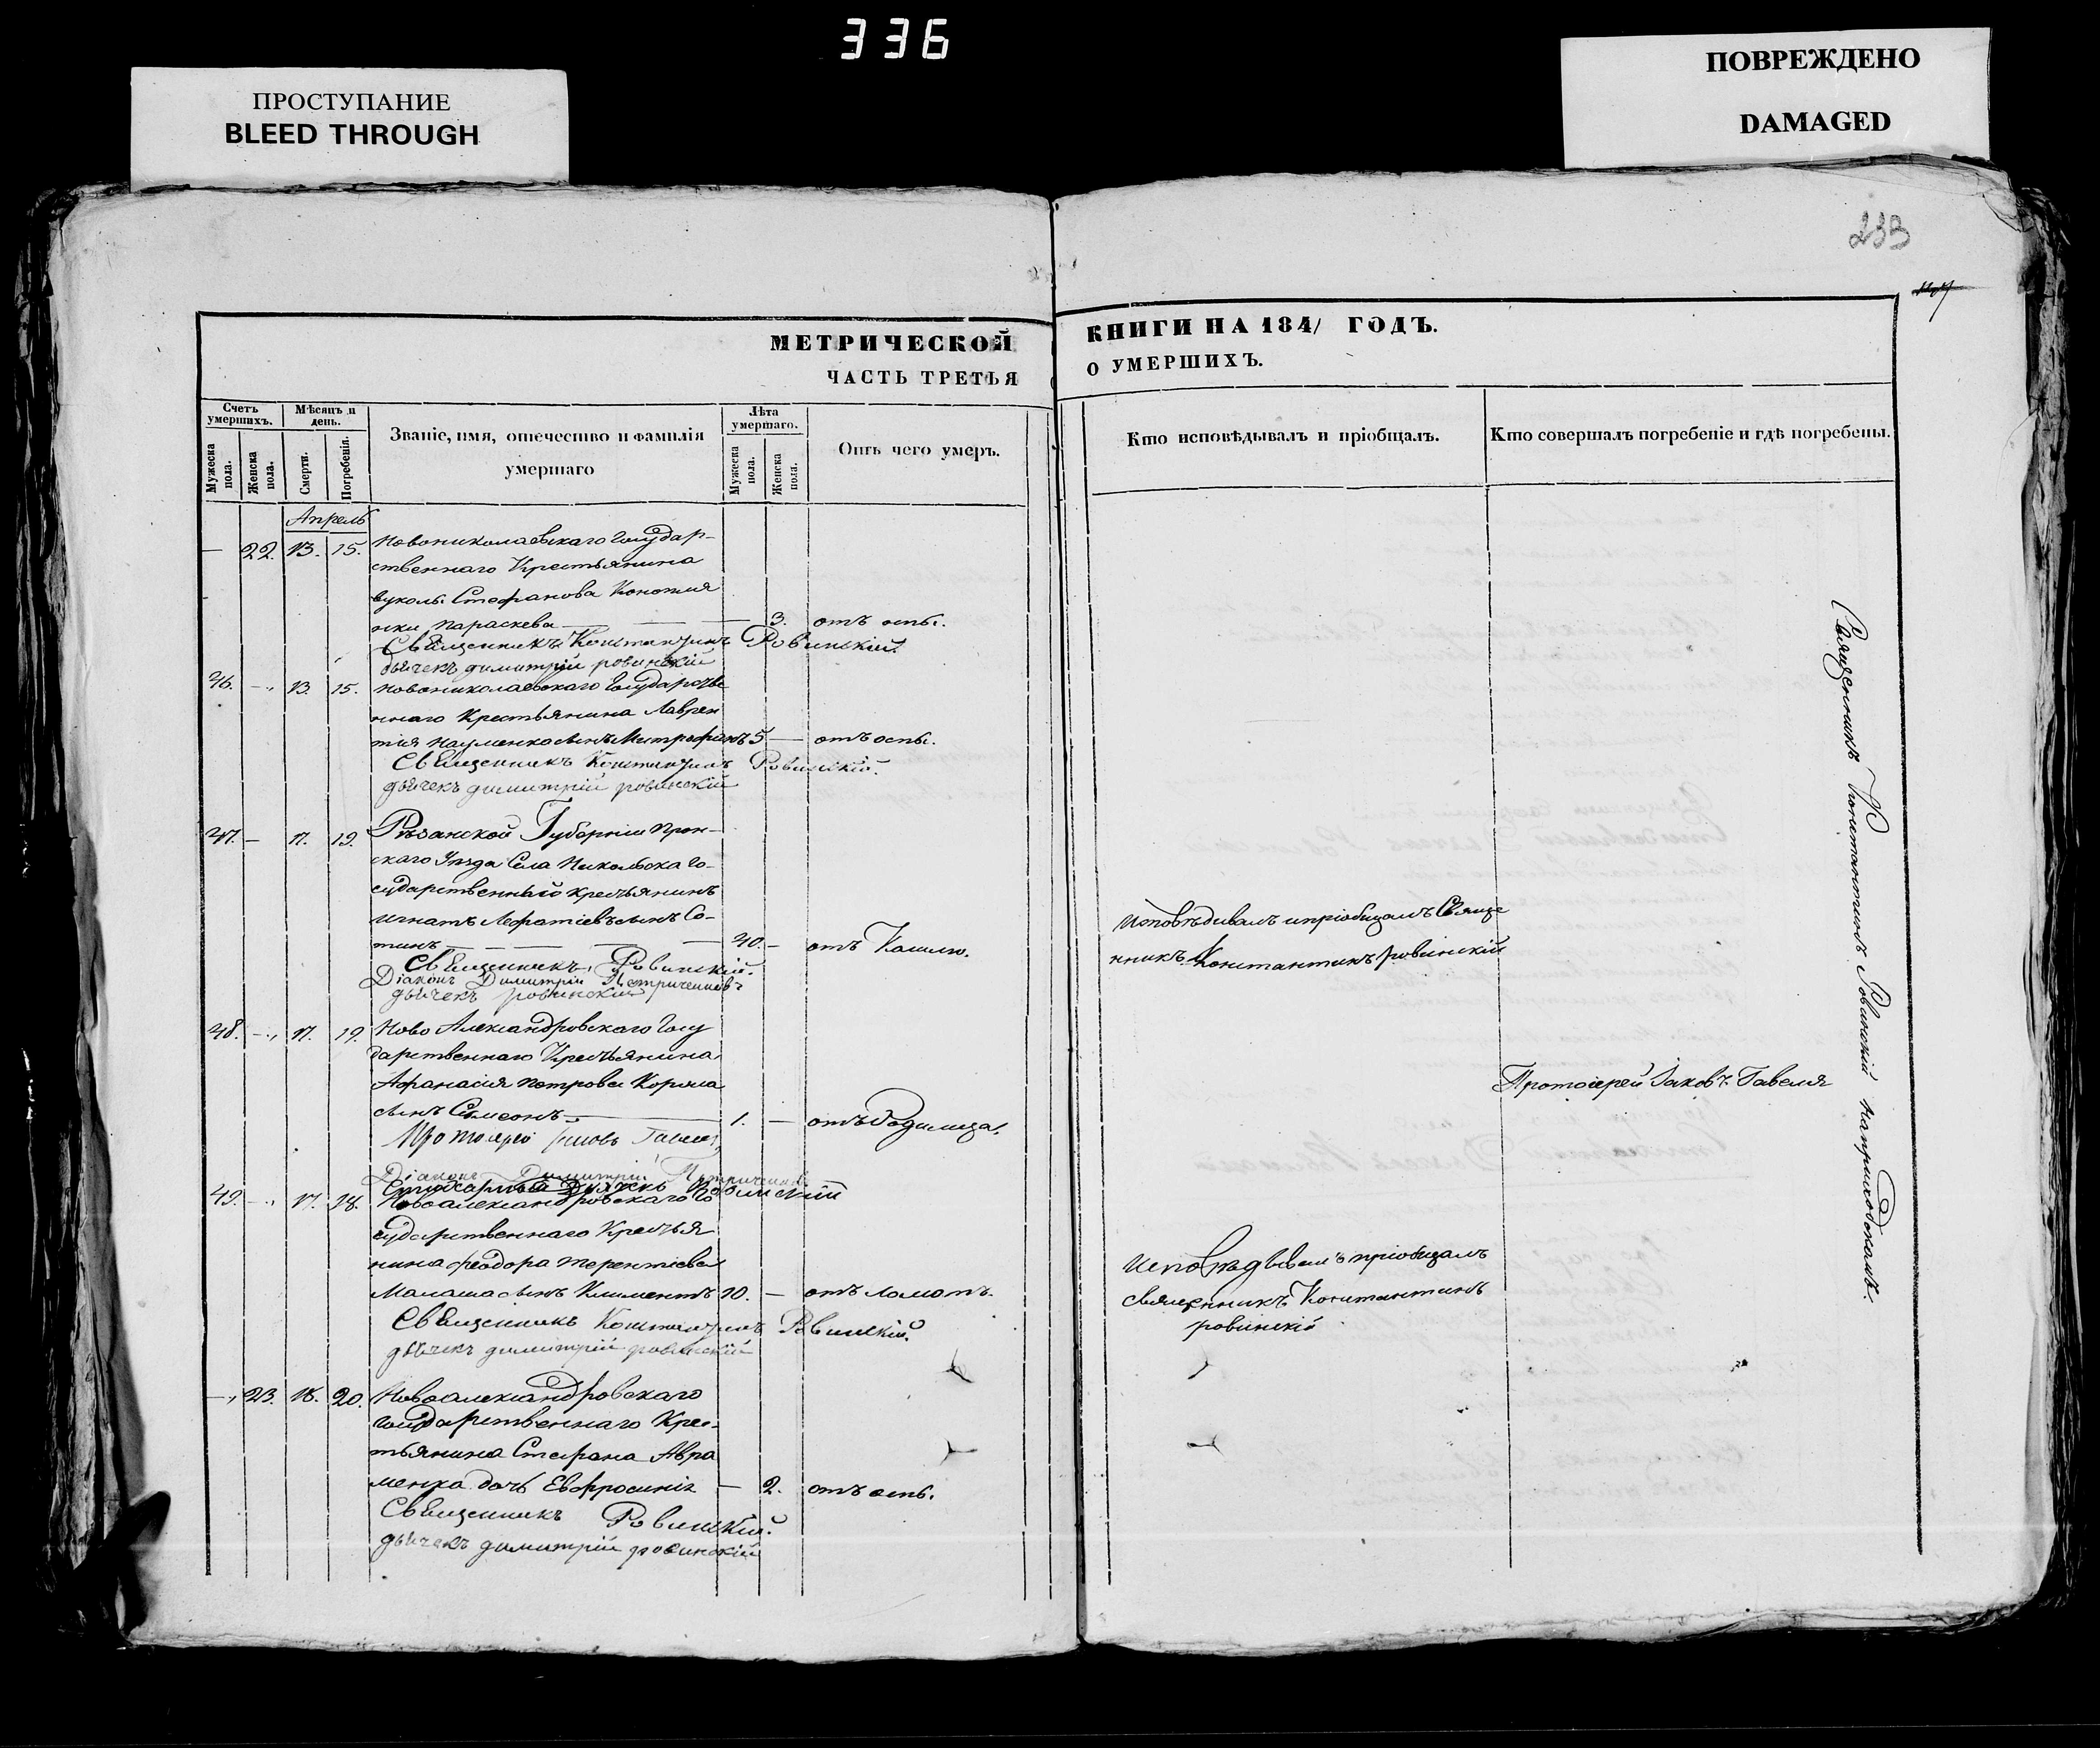 336
ПРОСТУПАНИЕ
BLEED THROUGH
ПОВРЕЖДЕНО
DAMAGED
233
МЕТРИЧЕСКОЙ
ЧАСТЬ ТРЕТЬЯ
КНИГИ НА 1841 ГОДЪ.
О УМЕРШИХЪ.
Счетъ умершихъ.
Мѣсяцъ и день.
Званіе, имя, отечество и фамилія умершаго
Лѣта умершаго.
Отъ чего умеръ.
Кто исповѣдывалъ и пріобщалъ.
Кто совершалъ погребеніе и гдѣ погребены.
Мужеска пола.
Женска пола.
Смерти.
Погребенія.
Мужеска пола.
Женска пола.
Апрель
— 22. 13. 15. Новониколаевскаго Государ-
ственнаго Крестьянина
Стефанова
Параскева — — — 3. отъ оспы.
Священникъ Константинъ Ровинскій.
дьячекъ димитрій ровинскій
46. — 13. 15. Новониколаевскаго Государстве
ннаго Крестьянина Лаврен
тія Науменка сынъ Митрофанъ 5 — отъ оспы.
Священникъ Константинъ Ровинскій.
дьячекъ димитрій ровинскій
47. — 17. 19. Рязанской Губерніи Прон-
скаго Уезда Села Никольска Го-
сударственный крестьянинъ
Игнатъ сынъ Со-
тинъ — — — — 40. — отъ Кашлю.
Священникъ Ровинскій.
Діаконъ Димитрій
дьячекъ ровинскій
Исповѣдивалъ и пріобщалъ Свяще
нникъ Константинъ ровинскій
48. — 17. 19. Ново Александровскаго Госу
дарственнаго Крестьянина
Афанасія Петрова Корола
сынъ Симеонъ — 1. — отъ Родимца.
Протоіерей Іаковъ Гавеля
Протоіерей Іаковъ Гавеля
Діаконъ Димитрій
Дьячекъ Ровинскій
49. — 17. 18. Новоалександровскаго Го
сударственнаго Крестья
нина Феодора Терентіева
Малаша сынъ Климентъ 10. — отъ ломотъ.
Священникъ Константинъ Ровинскій.
дьячекъ димитрій ровинскій
Исповѣдывалъ и пріобщалъ
священникъ Константинъ
ровинскій
— 23. 18. 20. Новоалександровскаго
Государственнаго Крес-
тьянина Стефана Авра
менка дочь Евфросинія — 2. отъ оспы.
Священникъ Ровинскій.
дьячекъ димитрій ровинскій
Священникъ Константинъ Ровинскій